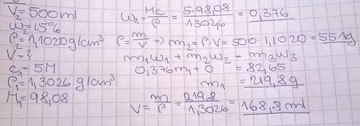 V₂=500ml
w=15%
ρ₂=1,1020g/cm³
V=?
c₁=5M
ρ₁=1,3026g/cm³
M₁=98,08
w₁=Mc/ρ=5·98,08/1302,6=0,376
ρ=m/V→m₂=ρ·V=500·1,1020=551g
m₁w₁+m₂w₂=m₃w₃
0,376m₁+0=82,65
m₁=219,8g
V=m/ρ=219,8/1,3026=168,8ml